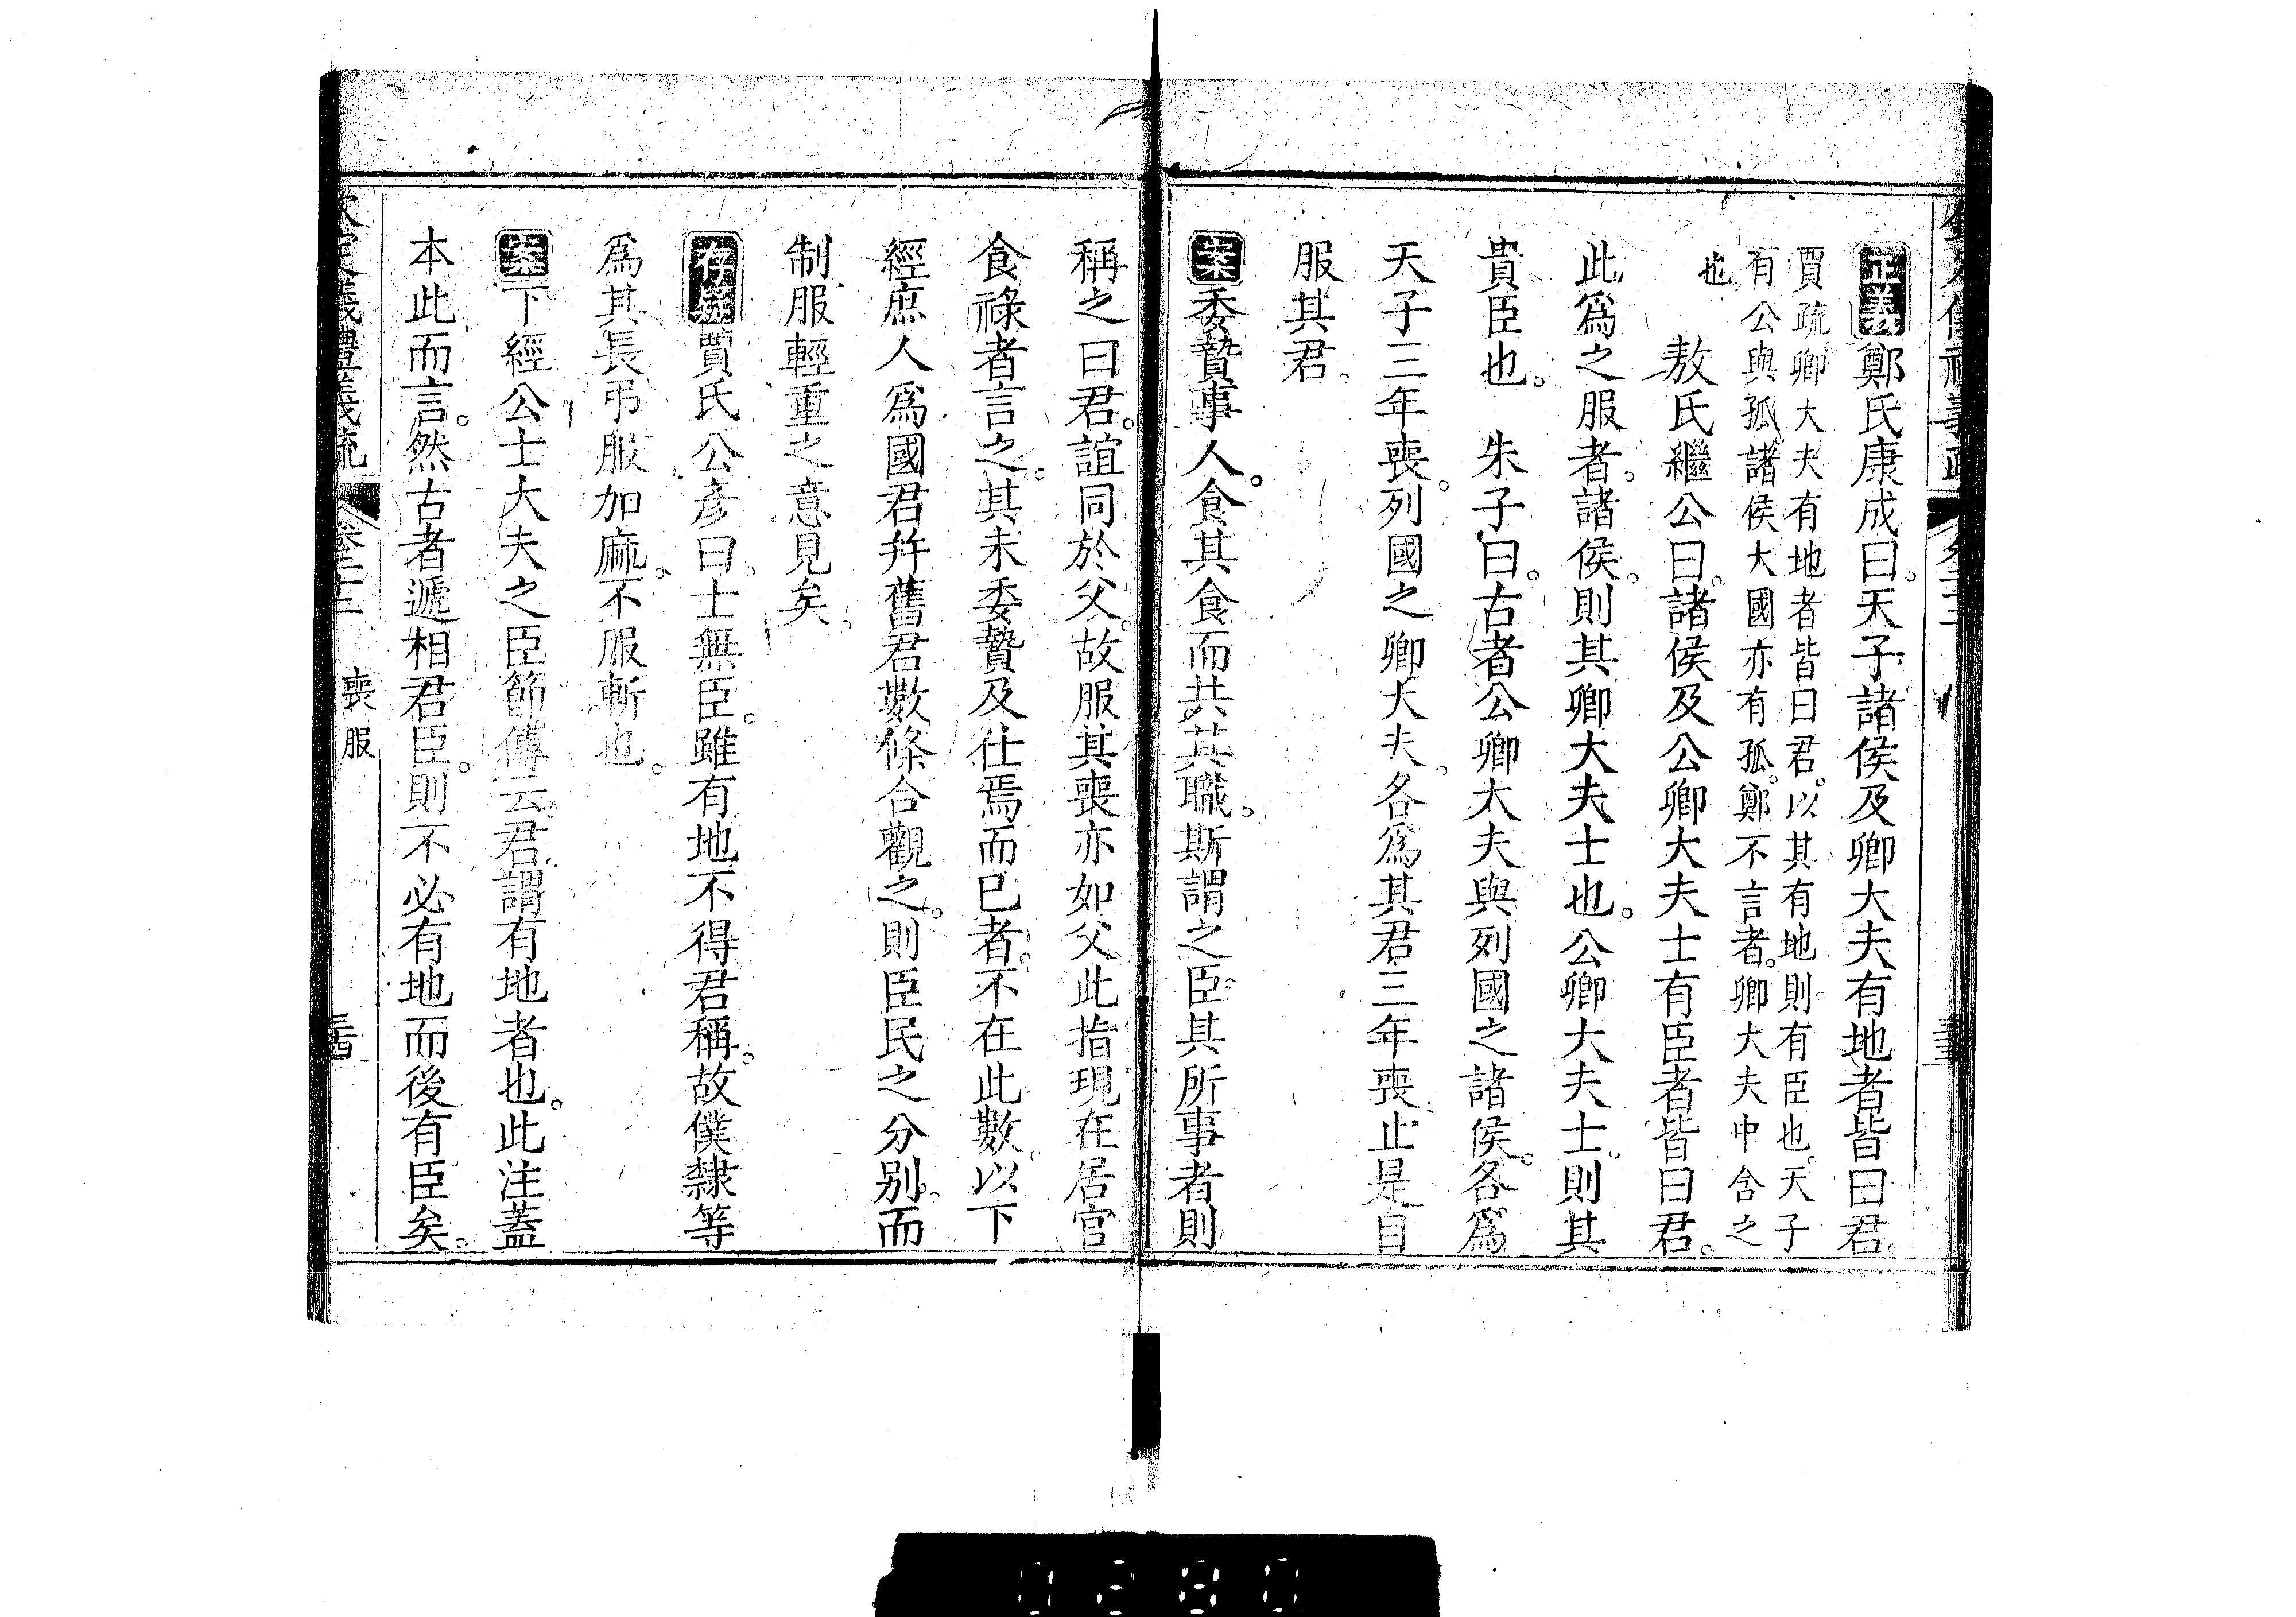 正義鄭氏康成曰。天子諸侯及卿大夫有地者皆曰君。
賈疏。卿大夫有地者皆曰君。以其有地則有臣也。天子
有公與孤。諸侯大國亦有孤。鄭不言者。卿大夫中含之
也
敖氏繼公曰。諸侯及公卿大夫士有臣者皆曰君。
此爲之服者。諸侯。則其卿大夫士也。公卿大夫士。則其
貴臣也。 朱子曰。古者公卿大夫與列國之諸侯。各爲
天子三年喪。列國之卿大夫。各爲其君三年喪。止是自
服其君。
案委贄事人。食其食而共其職。斯謂之臣。其所事者則
稱之曰君。誼同於父。故服其喪亦如父此指現在居官
食祿者言之。其未委贄及仕焉而已者。不在此數。以下
經庶人爲國君幷舊君數條合觀之。則臣民之分別。而
制服輕重之意見矣。
存疑賈氏公彥曰。士無臣。雖有地不得君稱。故僕隸等
爲其長弔服加麻。不服斬也。
案下經公士大夫之臣節傳云。君謂有地者也。此注蓋
本此而言。然古者遞相君臣。則不必有地而後有臣矣。
欽定儀禮義疏 喪服